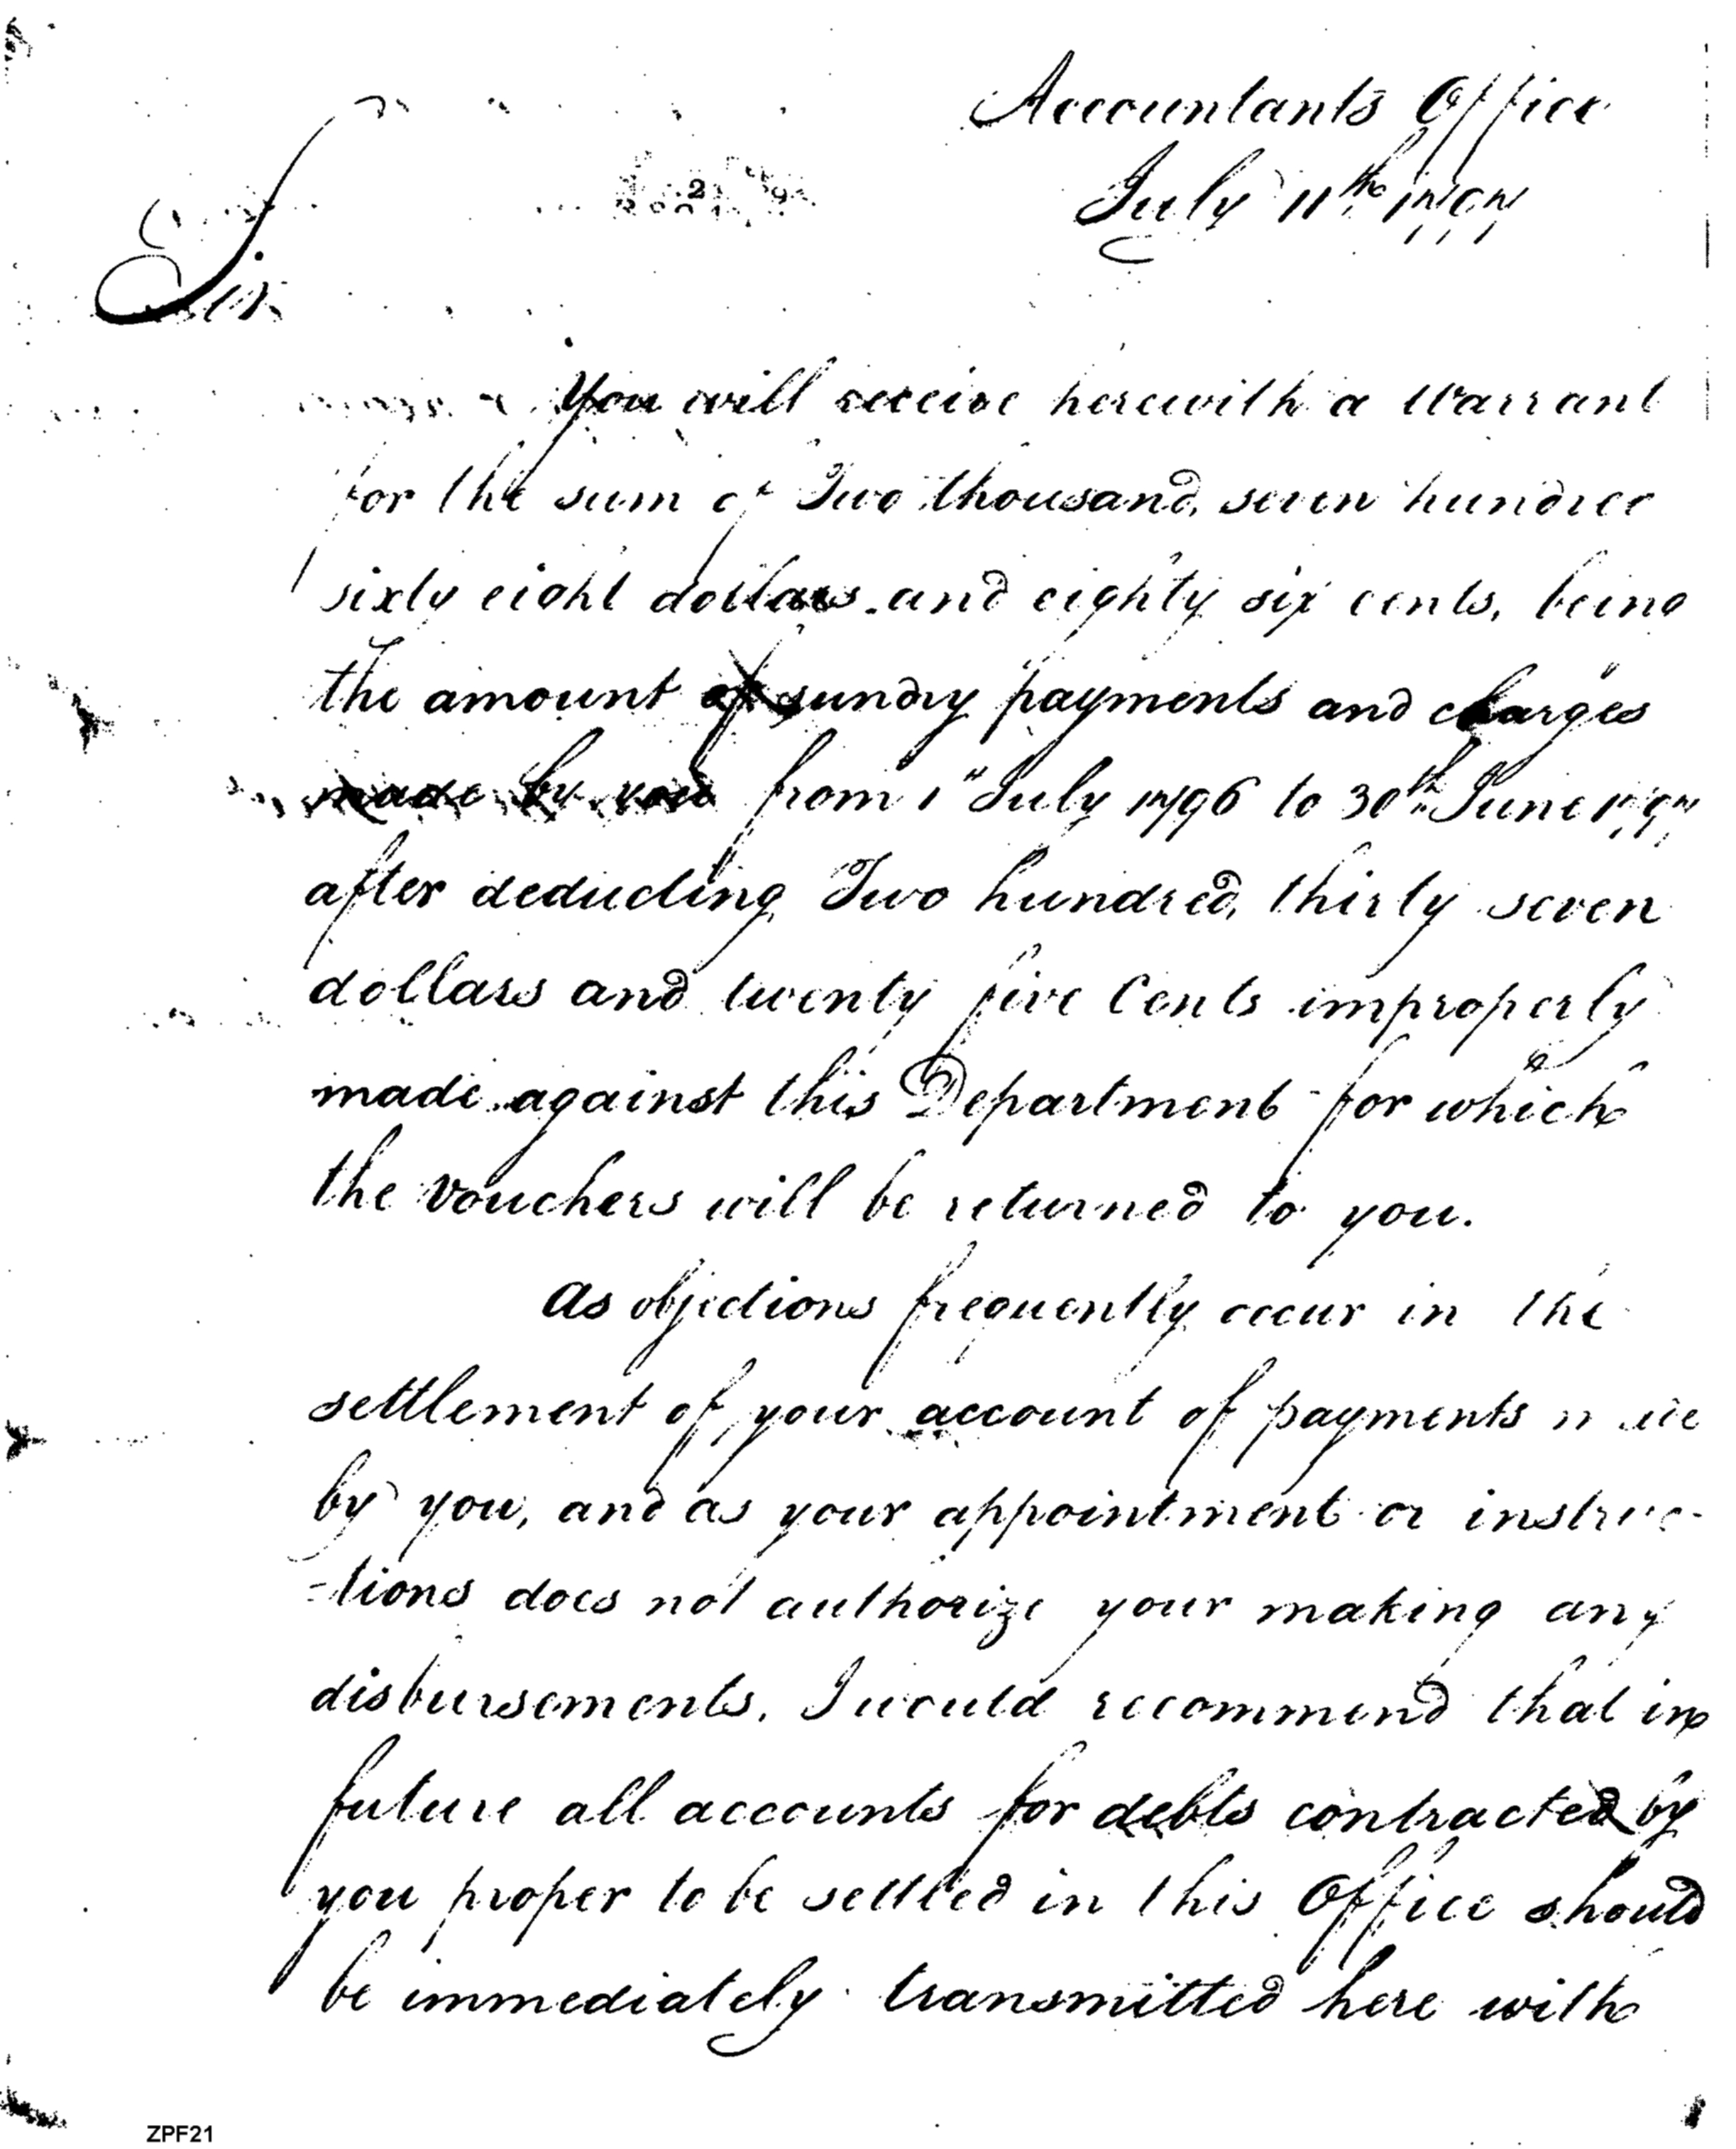 Accountants Office
July 11th 1797
Sir
You will receive herewith a Warrant
for the sum of Two thousand, seven hundred
sixty eight dollars and eighty six cents, being
the amount of sundry payments and charges
made by you from 1st July 1796 to 30th June 1797
after deducting Two hundred, thirty seven
dollars and twenty five Cents improperly
made against this Department for which
the vouchers will be returned to you.
As objections frequently occur in the
settlement of your account of payments made
by you, and as your appointment or instruc-
-tions does not authorize your making any
disbursements. I would recommend that in
future all accounts for debts contracted by
you proper to be settled in this Office should
be immediately transmitted here with
ZPF21